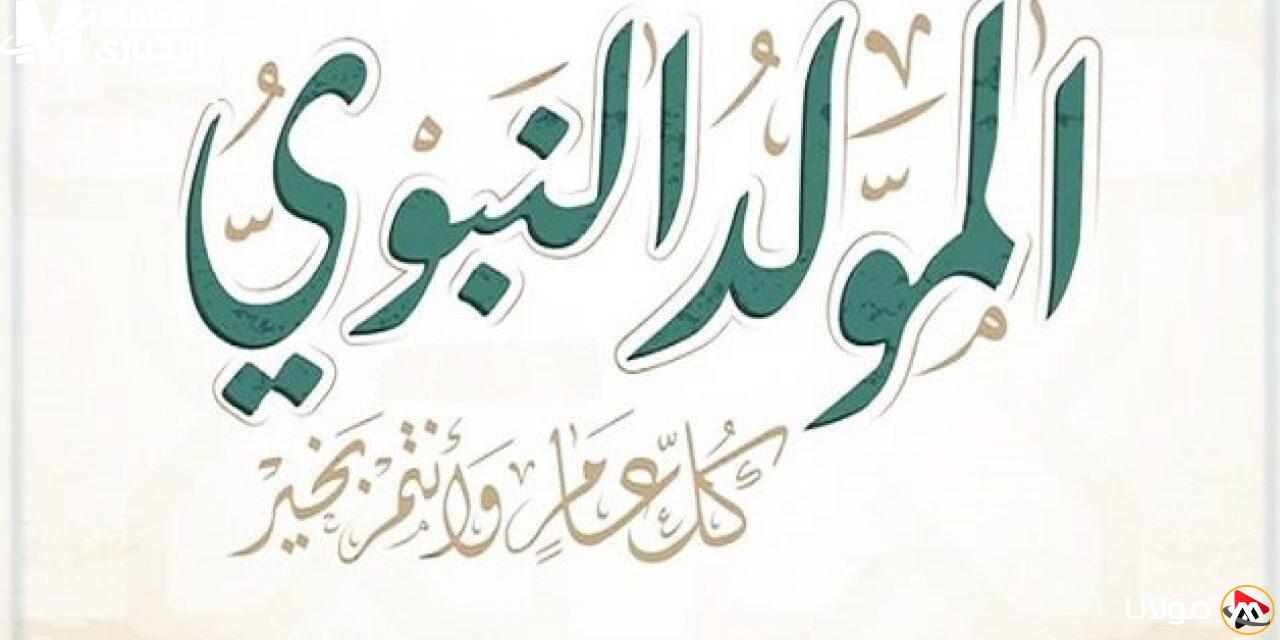 المساء
الإخباري
المَوّلد النَبوْيّ
كُلّ عَامٍ وَأنتمْ بَخيْر
مولانا